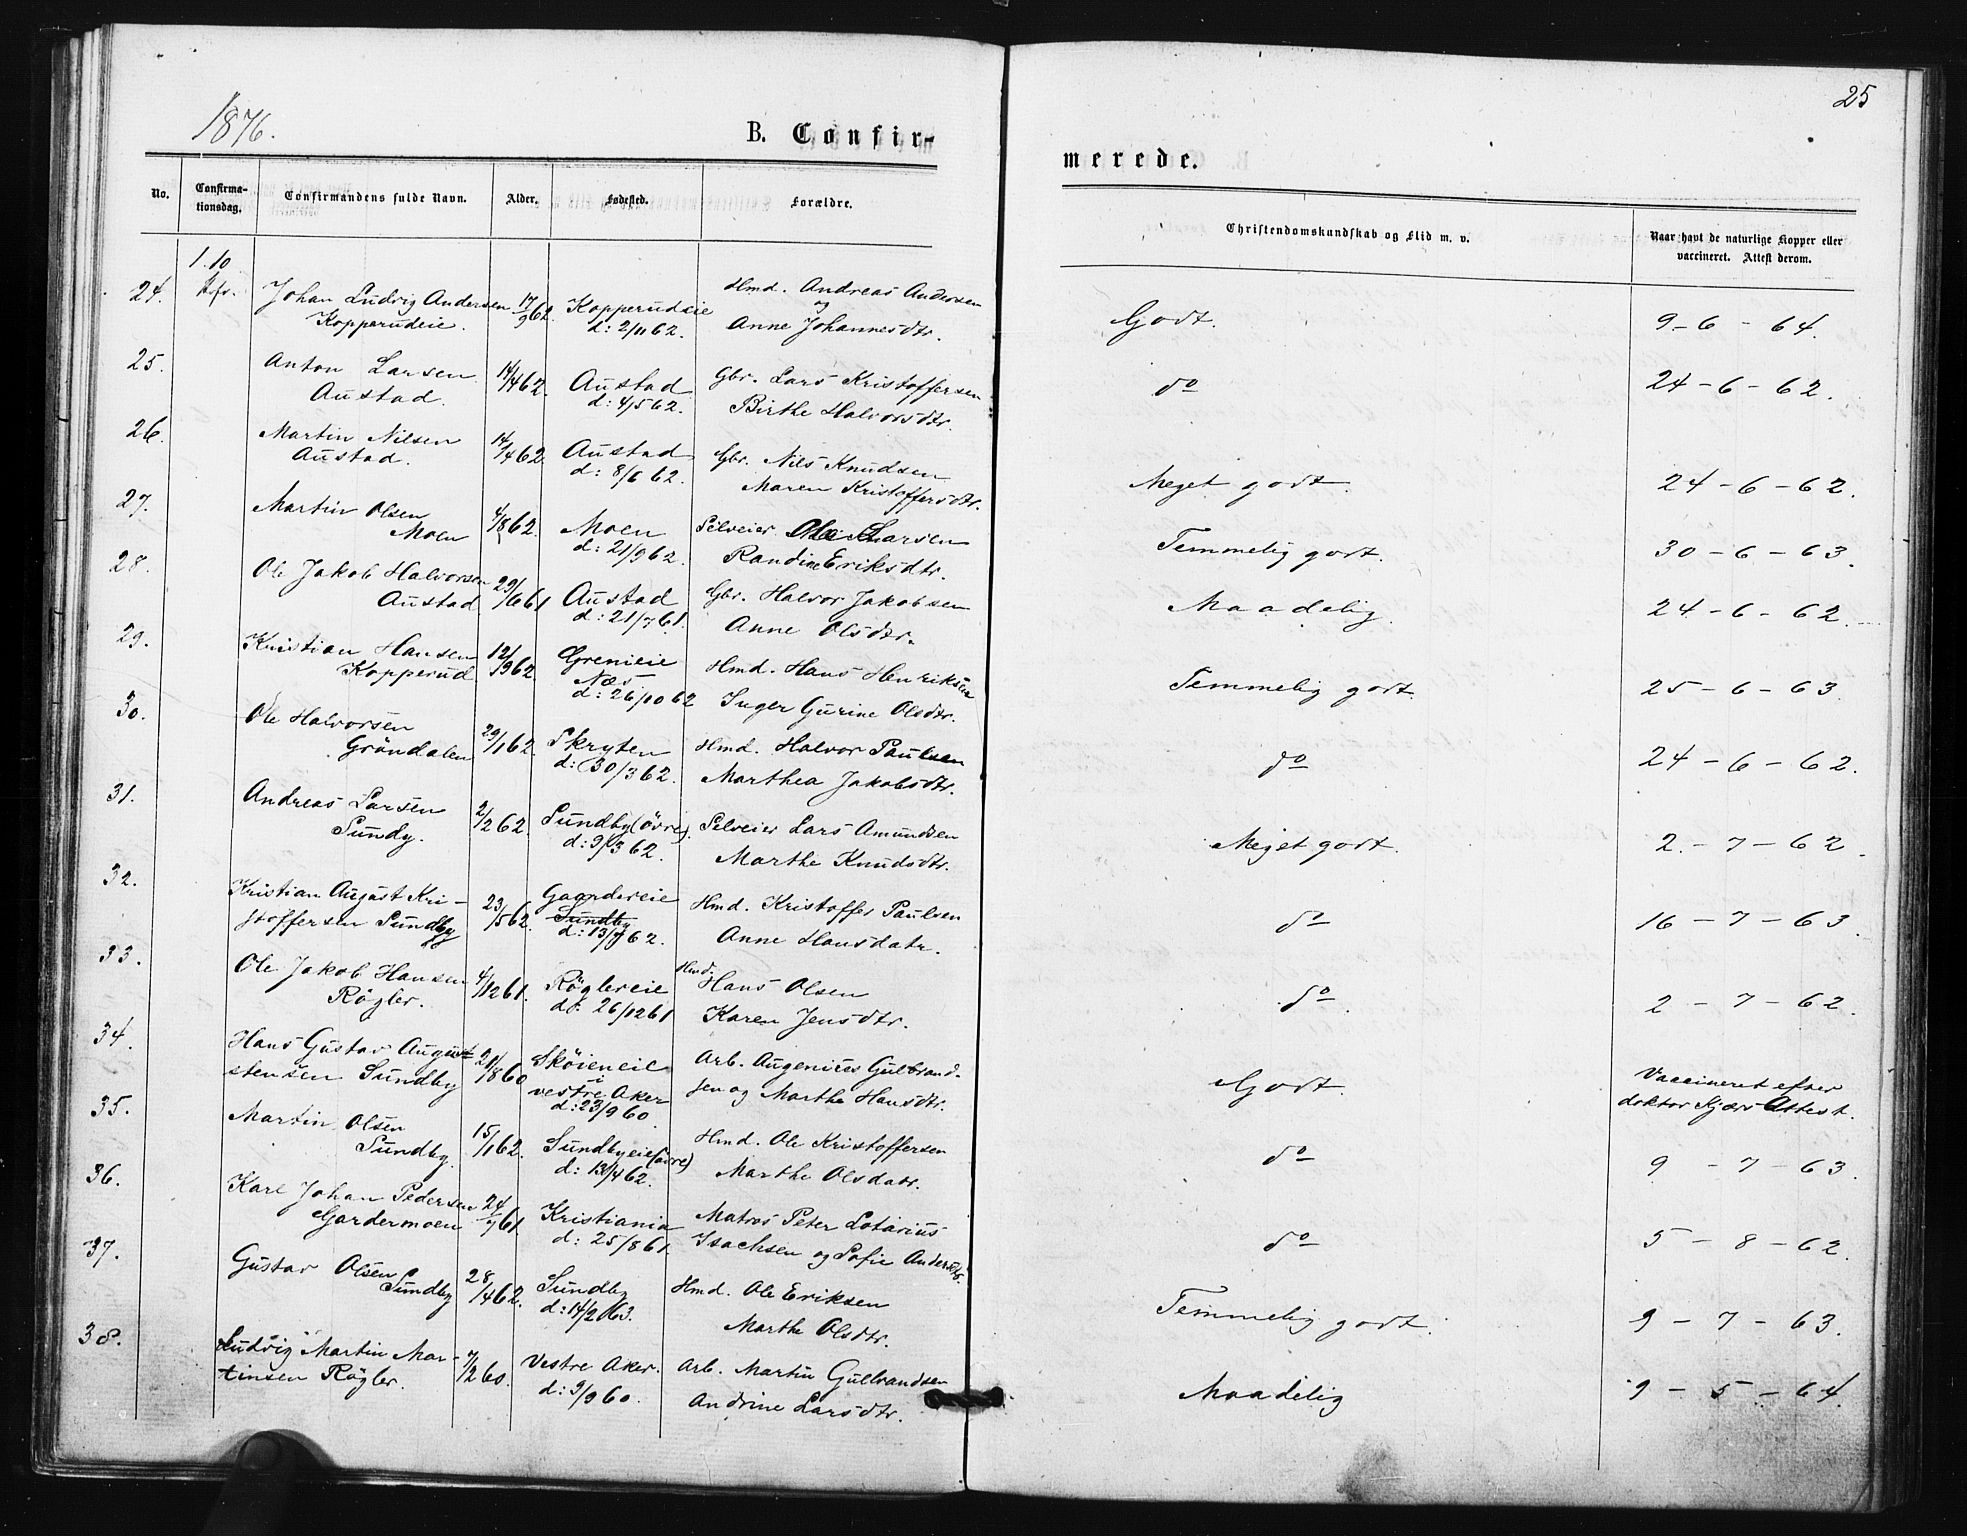 1876.
B. Confir-
No.
Confirma-
tionsdag.
Confirmandens fulde Navn.
Alder.
Fødested.
Forældre.
24.
1.10
Johan Ludvig Andersen
Kopperudeie.
17/9 62.
Kopperudeie
d: 2/11 62.
Hmd. Andreas Andersen
og
Anne Johannesdtr.
25.
Anton Larsen
Austad.
14/4 62.
Austad
d: 4/5 62.
Gbr. Lars Kristoffersen
Birthe Halvorsdtr.
26.
Martin Nilsen
Austad.
14/4 62.
Austad
d: 8/6 62.
Gbr. Nils Knudsen
Maren Kristoffersdtr.
27.
Martin Olsen
Moen
4/8 62.
Moen
d: 21/9 62.
Selveier Ole Larsen
Randine Eriksdtr.
28.
Ole Jakob Halvorsen
Austad
29/6 61
Austad
d: 21/7 61.
Gbr. Halvor Jakobsen
Anne Olsdtr.
29.
Kristian Hansen
Kopperud
12/9 62.
Grenieie
Næs
d: 26/10 62
Hmd. Hans Henriksen
Inger Gurine Olsdtr.
30.
Ole Halvorsen
Gröndalen
29/1 62.
Skryten
d: 30/3 62.
Hmd. Halvor Paulsen
Marthea Jakobsdtr.
31.
Andreas Larsen
Sundy.
2/2 62.
Sundby (övre).
d: 9/3 62.
Selveier Lars Amundsen
Marthe Knudsdtr.
32.
Kristian August Kri-
stoffersen Sundby
23/5 62.
Gaardereie
Sundby
d: 13/7 62.
Hmd. Kristoffer Paulsen
Anne Hansdatr.
33.
Ole Jakob Hansen
Rögler.
4/12 61.
Röglereie
d: 26/12 61
Hmd.
Hans Olsen
Karen Jensdtr.
34.
Hans Gustav August
stensen Sundby
21/8 60
Sköieneie
i
vestre Aker
d: 23/9 60.
Arb. Augenius Gulbrand-
sen og Marthe Hansdtr.
35.
Martin Olsen
Sundby.
15/1 62.
Sundbyeie (övre)
d: 13/4 62.
Hmd. Ole Kristoffersen
Marthe Olsdatr.
36.
Karl Johan Pedersen
Gardermoen
24/7 61.
Kristiania
d: 25/8 61.
Matros Peter Lotarius
Isachsen og Sofie Andersdtr.
37.
Gustav Olsen
Sundby
28/4 62.
Sundby
d: 14/2 63.
Hmd. Ole Eriksen
Marthe Olsdtr.
38.
Ludvig Martin Mar-
tinsen Rögler.
7/2 60.
Vestre Aker.
d: 9/9 60.
Arb. Martin Gulbrandsen
Andrine Larsdtr.
25
merede.
Christendomskundskab og Flid m. v.
Naar havt de naturlige Kopper eller
vaccineret. Attest derom.
Godt.
9 - 6 - 64.
do
24 - 6 - 62.
Meget godt.
24 - 6 - 62.
Temmelig godt.
30 - 6 - 63.
Maadelig.
24 - 6 - 62.
Temmelig godt.
25 - 6 - 63.
do
24 - 6 - 62.
Meget godt.
2. - 7 - 62.
do
16 - 7 - 63.
do
2 - 7 - 62.
Godt.
Vaccineret efter
doktor Kjærs Attest.
do
9 - 7 - 63.
do
5 - 8 - 62.
Temmelig godt.
9 - 7 - 63.
Maadelig
9 - 5 - 64.